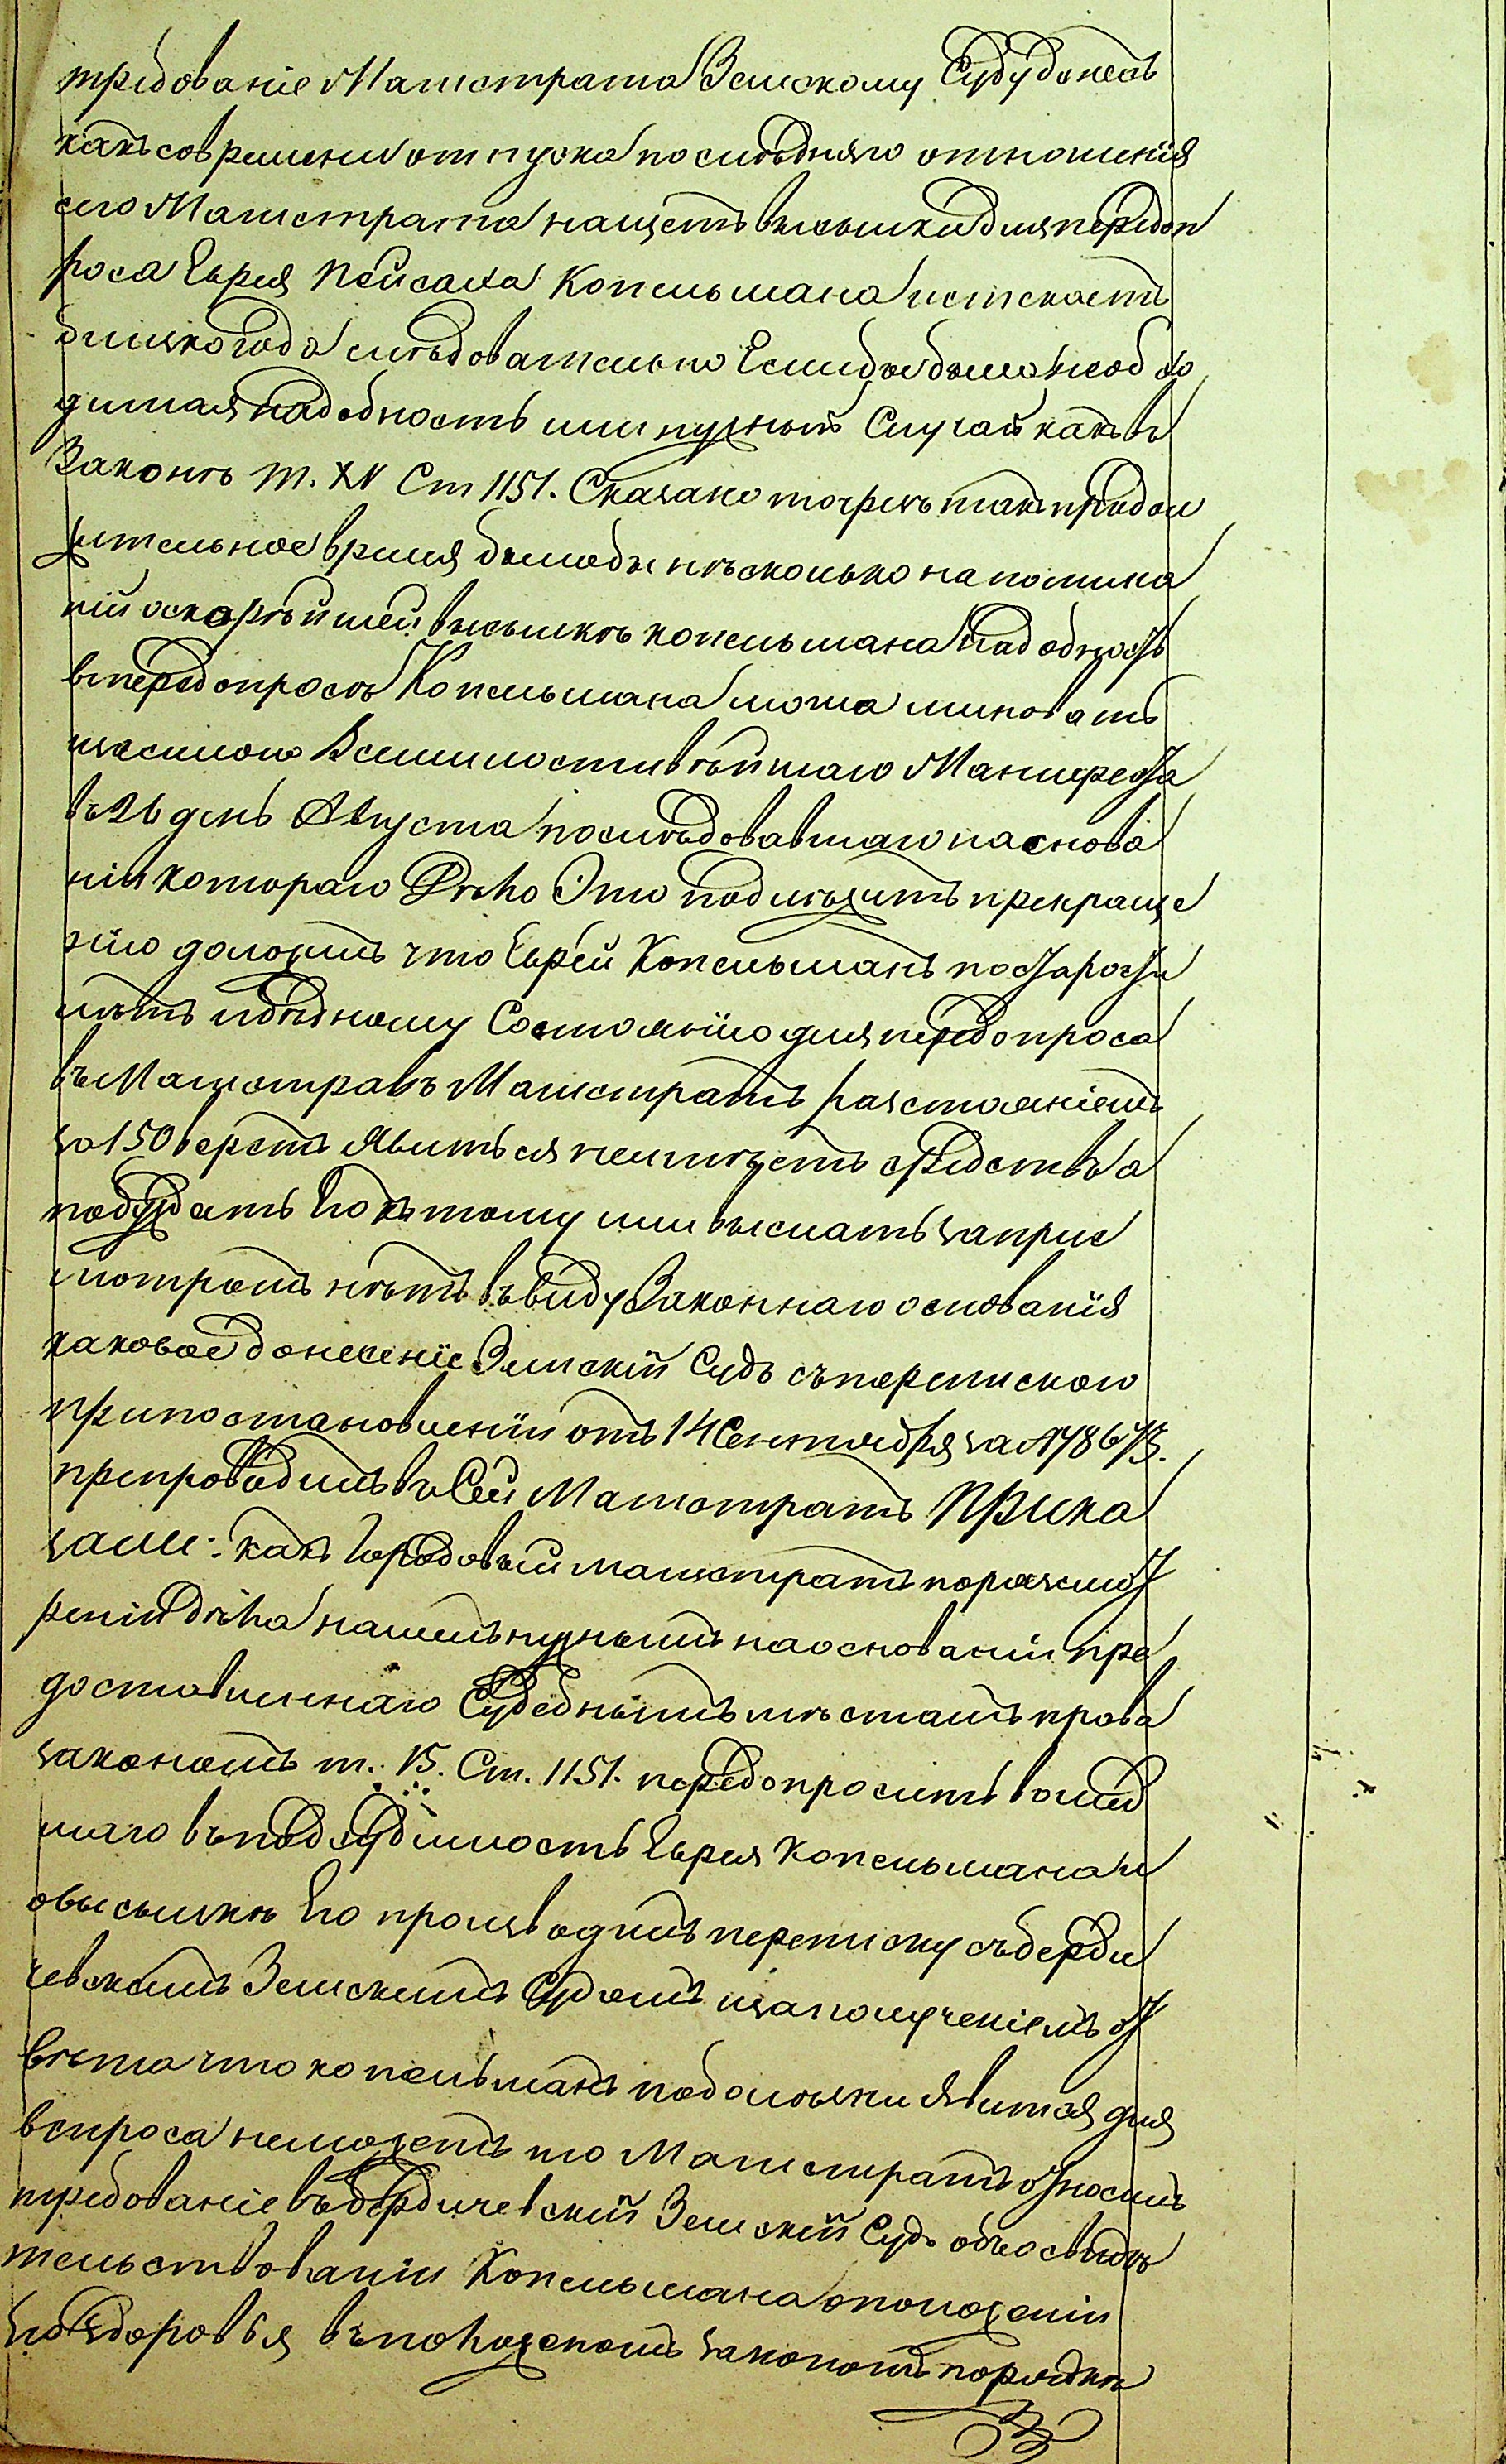 требованіе Магистрата Земскому Суду донесъ
какъ современи отпуска последняго отношенія
сего Магистрата нащетъ высылки для передоп
роса Еврея Пейсаха Копельмана истекаетъ
близко года следовательно Еслибы было необхо
димая надобность или нужный Случай какъ въ
Законѣ т. XV Ст 1151. Сказано то чрезъ такъ продол
жительное время былобы нѣсколько напомина
ній оскорѣйшей высылкѣ копельмана Надобность
впередопросѣ Копельмана могла миновать
засилою Всемилостивѣйшаго Манифеста
въ 26 день Августа последовавшаго наоснова
ніи котораго Дѣло Это подлѣжитъ прекраще
нію доложить что Еврей Копельманъ постарости
лѣтъ ибѣдному Состоянію для передопроса
въ Магистратъ Магистратъ разстояніемъ
за 150 верстъ Явиться неимѣетъ средствъ а
побуждать Его къ тому или выслать заприс
мотромъ нѣтъ въ виду Законнаго основанія
каковое донесеніе Земскій Судъ съ перепискою
припостановленіи отъ 14 Сентября за № 78673.
препроводилъ въ Сей Магистратъ Прика
зали: какъ Городовый магистратъ поразсмот
реніи дѣла нашелъ нужнымъ наоснованіи пре
доставленнаго Судебнымъ мѣстамъ права
закономъ т. 15. Ст. 1151. передопросить вошед
шаго въ подсудимость Еврея Копельмана и
овысылкѣ Его производилъ переписку съ берди
чевскимъ Земскимъ Судомъ иза полученіемъ от
вѣта что копельманъ поболѣзни Явится для
вспроса неможетъ то Магистратъ относилъ
требованіе въ бердичевскій Земскій Судъ объ освидѣ
тельствованіи Копельмана оположеніи
Его здоровья въ положеномъ закономъ порядке